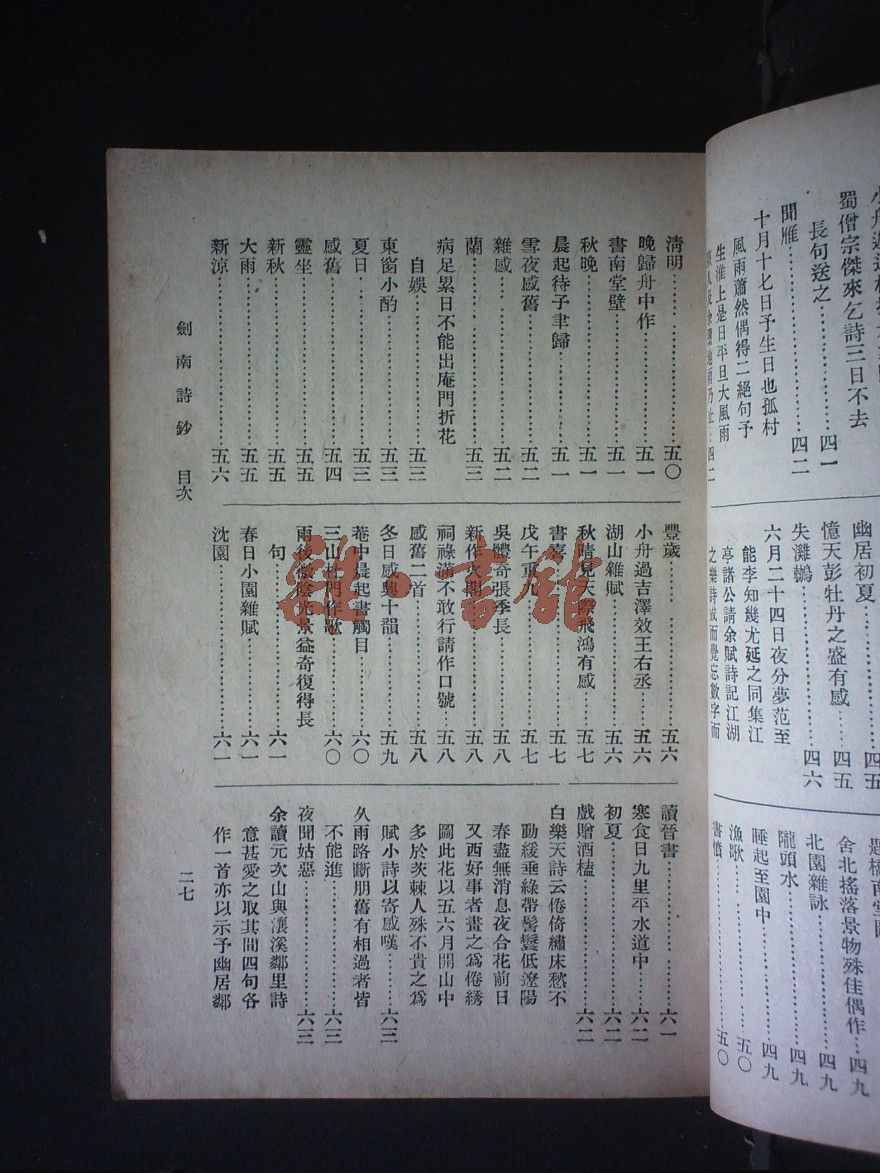 蜀僧宗傑來乞詩三日不去
長句送之……四一
聞雁……四二
十月十七日予生日也孤村
風雨蕭然偶得二絕句予
生淮上是日平旦大風雨
幽居初夏……四五
憶天彭牡丹之盛有感……四五
失灘鵝……四六
六月二十四日夜分夢范至
能李知幾尤延之同集江
亭諸公請余賦詩記江湖
之樂詩成而覺忘數字而
舍北搖落景物殊佳偶作…四九
北園雜詠……四九
隴頭水……四九
睡起至園中……四九
漁歌……五〇
書憤……五〇
清明……五〇
晚歸舟中作……五一
書南堂壁……五一
秋晚……五一
晨起待子聿歸……五一
雪夜感舊……五二
雜感……五二
蘭……五三
病足累日不能出庵門折花
自娛……五三
東窗小酌……五三
夏日……五三
感舊……五四
靈坐……五五
新秋……五五
大雨……五五
新涼……五六
豐歲……五六
小舟過吉澤效王右丞……五六
湖山雜賦……五六
秋晴見天際飛鴻有感……五七
書喜……五七
戊午重九……五七
吳體寄張季長……五八
新作火閣……五八
祠祿滿不敢行請作口號……五八
感舊二首……五八
冬日感興十韻……五九
菴中晨起書觸目……六〇
三山杜門作歌……六〇
雨後微陰光景益奇復得長
句……六一
春日小園雜賦……六一
沈園……六一
讀晉書……六一
寒食日九里平水道中……六二
初夏……六二
戲贈酒榼……六二
白樂天詩云倦倚繡床愁不
動緩垂綠帶髻鬟低遼陽
春盡無消息夜合花前日
又西好事者畫之爲倦綉
圖此花以五六月開山中
多於茨棘人殊不貴之爲
賦小詩以寄感嘆……六三
久雨路斷朋舊有相過者皆
不能進……六三
夜聞姑惡……六三
余讀元次山與瀼溪鄰里詩
意甚愛之取其間四句各
作一首亦以示予幽居鄰
劍南詩鈔 目次
二七
雜·書館